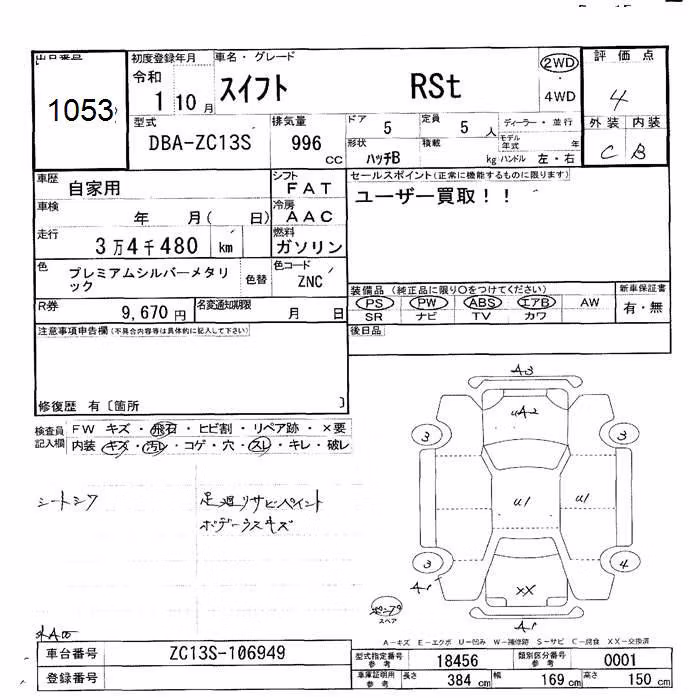 出品番号
1053
初度登録年月
令和
1 10 月
車名・グレード
スイフト RSt
2WD
4WD
評価点
4
外装 内装
C B
型式
DBA-ZC13S
排気量
996
cc
ドア 5
定員 5 人
ディーラー・並行
形状
ハッチB
積載
kg
モデル年式 年
ハンドル 左・右
車歴
自家用
シフト
FAT
セールスポイント(正常に機能するものに限ります)
ユーザー買取!!
車検
年 月( 日)
冷房
AAC
走行
3万4千480 km
燃料
ガソリン
色
プレミアムシルバーメタリ
ック
色替
色コード
ZNC
装備品(純正品に限り○をつけてください)
PS PW ABS エアB AW
SR ナビ TV カワ
新車保証書
有・無
R券
9,670 円
名変通知期限
月 日
後日品
注意事項申告欄(不具合内容等は具体的に記入して下さい)
修復歴 有〔箇所 〕
検査員
記入欄
FW キズ・飛石・ヒビ割・リペア跡・×要
内装・キズ・汚レ・コゲ・穴・スレ・キレ・破レ
シートシワ
足廻リサビペイント
ボデーラスキズ
A3
UA2
3 3
U1 U1
3 4
A1
XX
スペア
A1
A-キズ E-エクボ U-凹み W-補修跡 S-サビ C-腐食 XX-交換済
車台番号
ZC13S-106949
登録番号
型式指定番号
参考
18456
類別区分番号
参考
0001
車庫証明用
参考
長さ 384 cm 幅 169 cm 高さ 150 cm